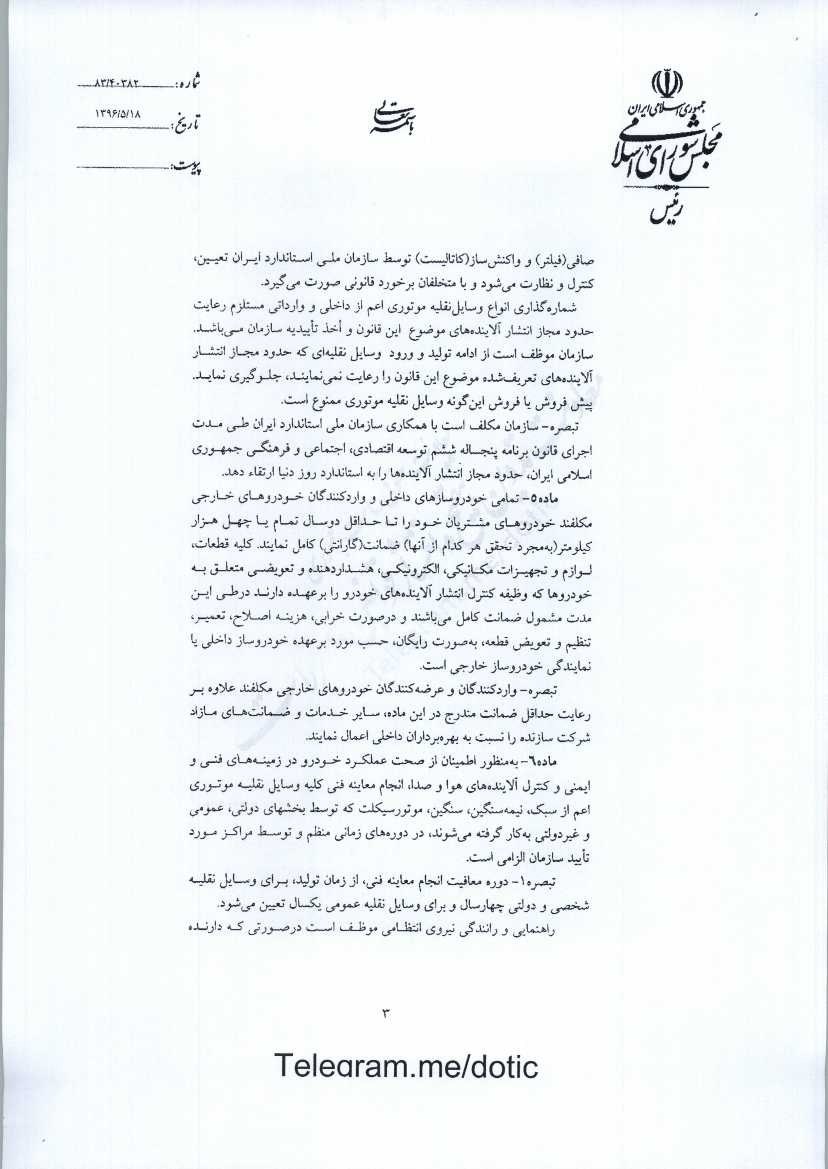 جمهوری اسلامی ایران
مجلس شورای اسلامی
رئیس
باسمه تعالی
شماره: ۸۳/۴۰۳۸۲
تاریخ: ۱۳۹۶/۵/۱۸
پیوست:
صافی(فیلتر) و واکنش‌ساز(کاتالیست) توسط سازمان ملی استاندارد ایران تعیین،
کنترل و نظارت می‌شود و با متخلفان برخورد قانونی صورت می‌گیرد.
شماره‌گذاری انواع وسایل‌نقلیه موتوری اعم از داخلی و وارداتی مستلزم رعایت
حدود مجاز انتشار آلاینده‌های موضوع این قانون و أخذ تأییدیه سازمان می‌باشد.
سازمان موظف است از ادامه تولید و ورود وسایل نقلیه‌ای که حدود مجاز انتشار
آلاینده‌های تعریف‌شده موضوع این قانون را رعایت نمی‌نمایند، جلوگیری نماید.
پیش فروش یا فروش این‌گونه وسایل نقلیه موتوری ممنوع است.
تبصره- سازمان مکلف است با همکاری سازمان ملی استاندارد ایران طی مدت
اجرای قانون برنامه پنجساله ششم توسعه اقتصادی، اجتماعی و فرهنگی جمهوری
اسلامی ایران، حدود مجاز انتشار آلاینده‌ها را به استاندارد روز دنیا ارتقاء دهد.
ماده۵- تمامی خودروسازهای داخلی و واردکنندگان خودروهای خارجی
مکلفند خودروهای مشتریان خود را تا حداقل دوسال تمام یا چهل هزار
کیلومتر(به‌مجرد تحقق هر کدام از آنها) ضمانت(گارانتی) کامل نمایند. کلیه قطعات،
لوازم و تجهیزات مکانیکی، الکترونیکی، هشداردهنده و تعویضی متعلق به
خودروها که وظیفه کنترل انتشار آلاینده‌های خودرو را برعهده دارند درطی این
مدت مشمول ضمانت کامل می‌باشند و درصورت خرابی، هزینه اصلاح، تعمیر،
تنظیم و تعویض قطعه، به‌صورت رایگان، حسب مورد برعهده خودروساز داخلی یا
نمایندگی خودروساز خارجی است.
تبصره- واردکنندگان و عرضه‌کنندگان خودروهای خارجی مکلفند علاوه بر
رعایت حداقل ضمانت مندرج در این ماده، سایر خدمات و ضمانت‌های مازاد
شرکت سازنده را نسبت به بهره‌برداران داخلی اعمال نمایند.
ماده۶- به‌منظور اطمینان از صحت عملکرد خودرو در زمینه‌های فنی و
ایمنی و کنترل آلاینده‌های هوا و صدا، انجام معاینه فنی کلیه وسایل نقلیه موتوری
اعم از سبک، نیمه‌سنگین، سنگین، موتورسیکلت که توسط بخشهای دولتی، عمومی
و غیردولتی به‌کار گرفته می‌شوند، در دوره‌های زمانی منظم و توسط مراکز مورد
تأیید سازمان الزامی است.
تبصره۱- دوره معافیت انجام معاینه فنی، از زمان تولید، برای وسایل نقلیه
شخصی و دولتی چهارسال و برای وسایل نقلیه عمومی یکسال تعیین می‌شود.
راهنمایی و رانندگی نیروی انتظامی موظف است درصورتی که دارنده
۳
Telegram.me/dotic